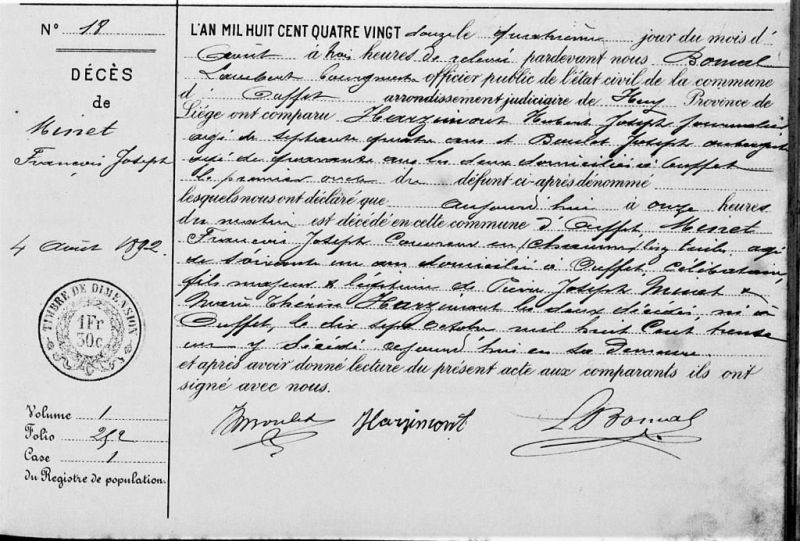 N° 18
DÉCÈS
de
Minet
François Joseph
4 août 1892.
TIMBRE DE DIMENSION
1Fr
30c.
Volume 1
Folio 252
Case 1
du Registre de population.
L'AN MIL HUIT CENT QUATRE VINGT douze le quatrième jour du mois d'
août à trois heures de relevé pardevant nous Bomal
Lambert bourgmestre officier public de l'état civil de la commune
d' Ouffet arrondissement judiciaire de Huy Province de
Liége ont comparu Harzimont Hubert Joseph journalier
agé de septante quatre ans et Boulet Joseph
agé de quarante ans les deux domiciliés à Ouffet
le premier oncle du défunt ci-après dénommé
lesquels nous ont déclaré que aujourd'hui à onze heures
du matin est décédé en cette commune d'Ouffet Minet
François Joseph Couvreur en chaume agé
de soixante un ans domicilié à Ouffet célibataire
fils majeur & légitime de Pierre Joseph Minet &
Marie Thérèse Harzimont les deux décédés, né à
Ouffet, le dix sept octobre mil huit Cent trente
un y décédé aujourd'hui en sa Demeure
et après avoir donné lecture du présent acte aux comparants ils ont
signé avec nous.
Harzimont LBomal